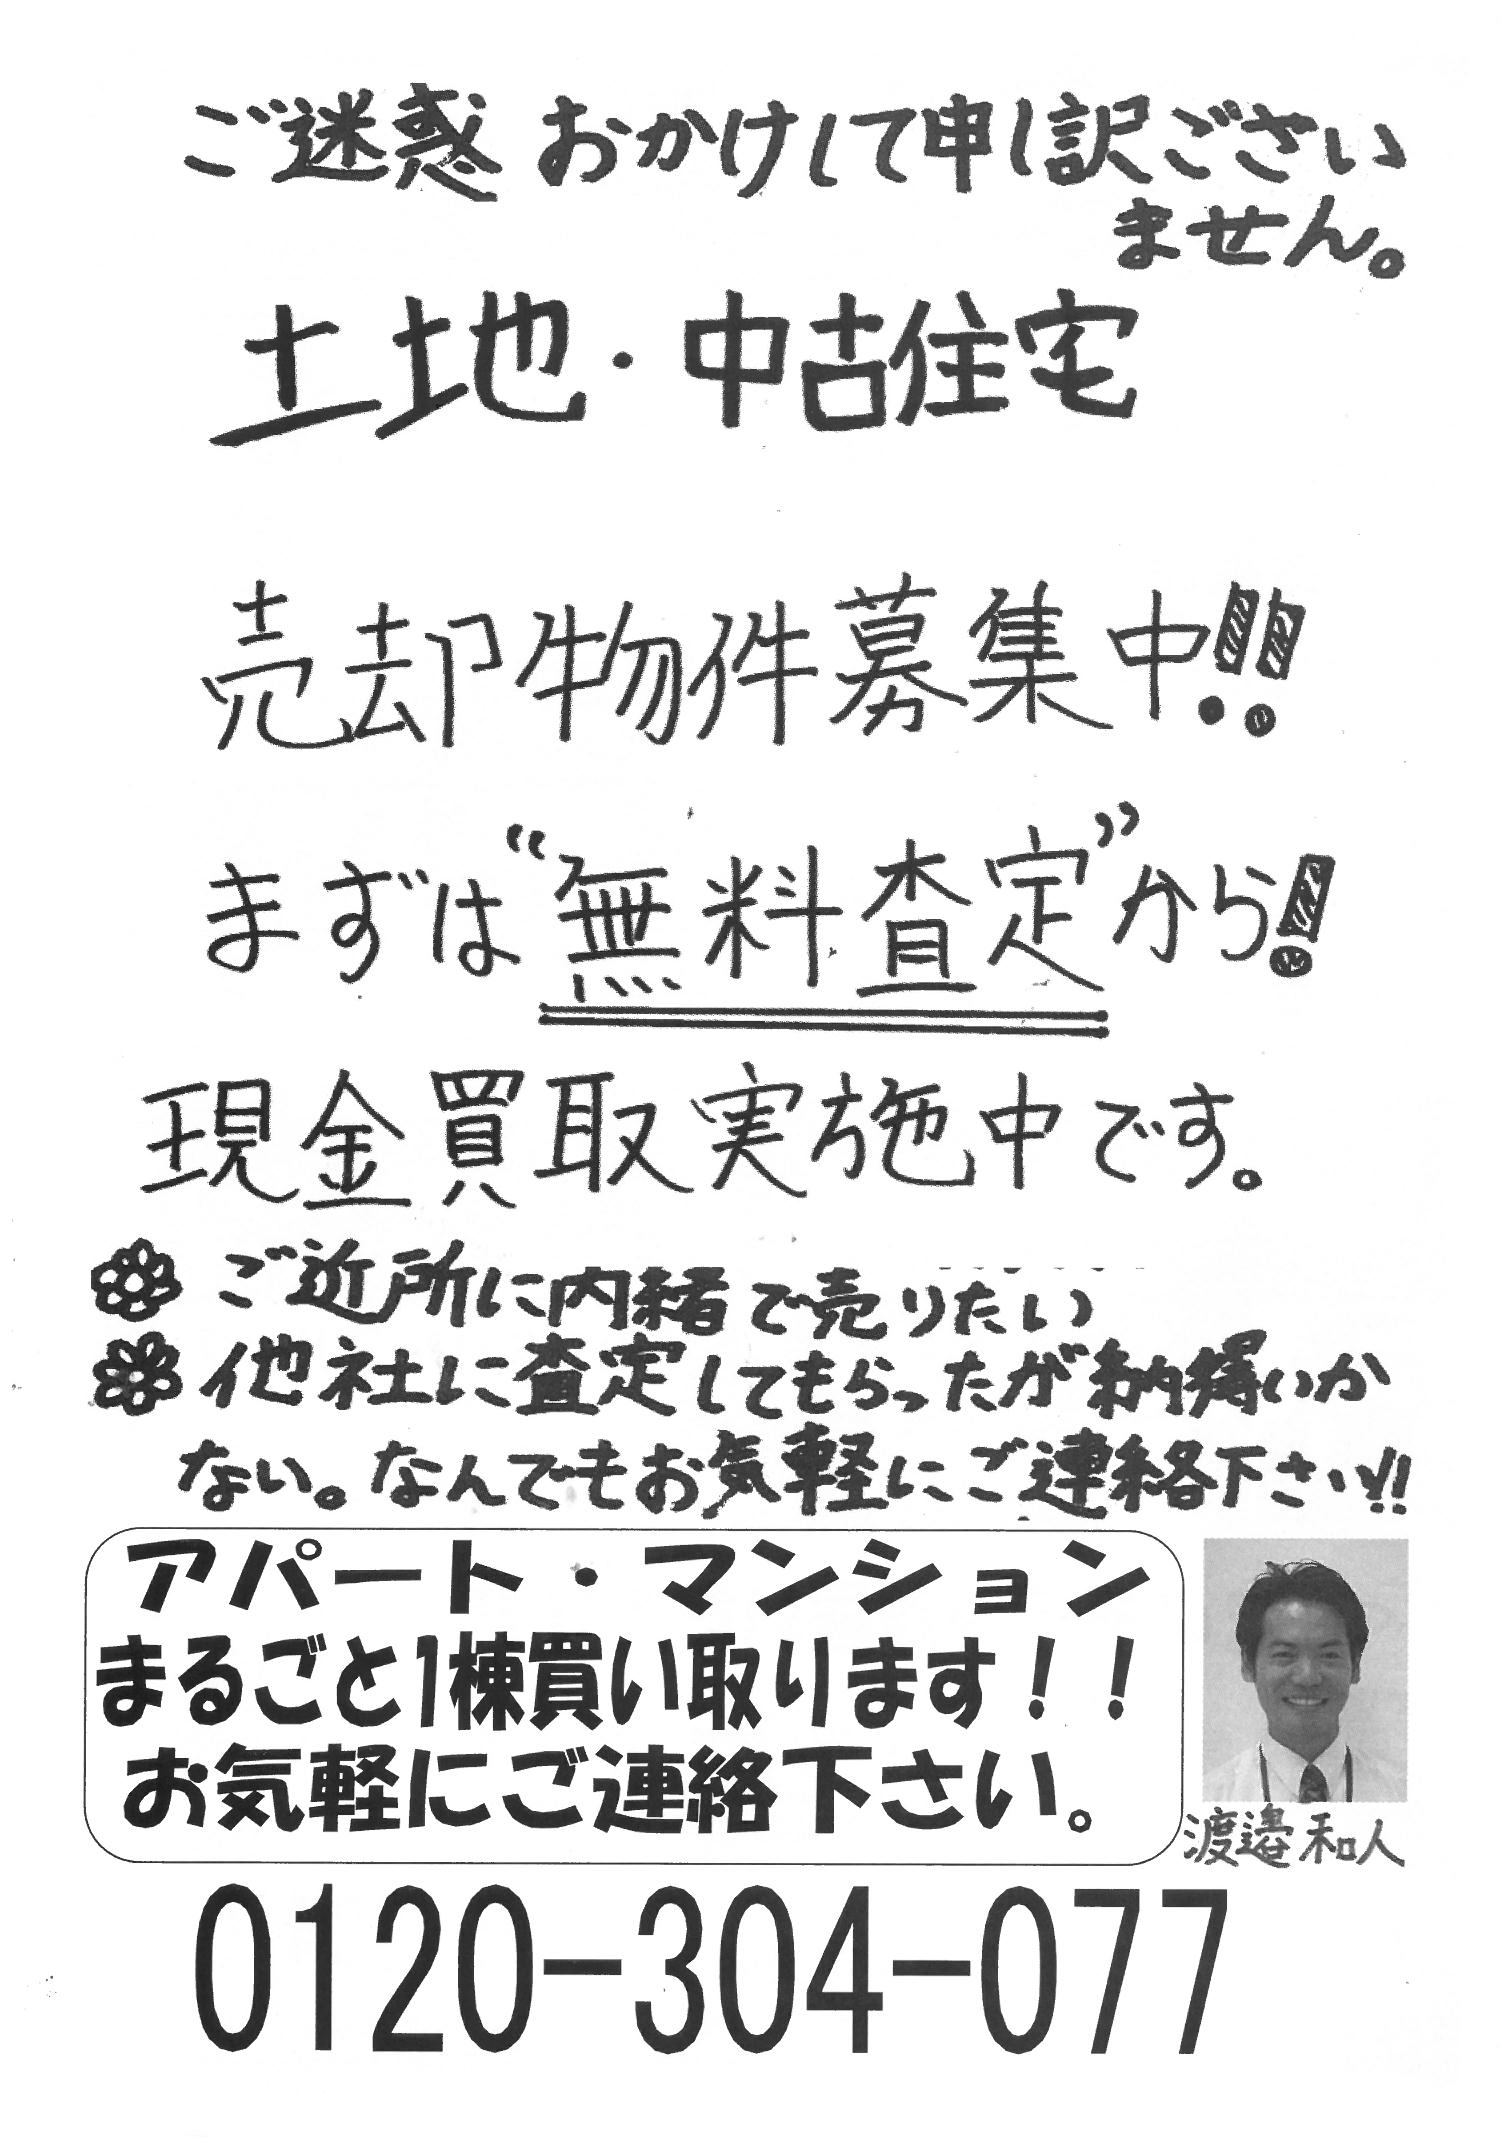 ご迷惑おかけして申し訳ござい
ません。
土地・中古住宅
売却物件募集中!!
まずは“無料査定”から!
現金買取実施中です。
ご近所に内緒で売りたい
他社に査定してもらったが納得いか
ない。なんでもお気軽にご連絡下さい!!
アパート・マンション
まるごと1棟買い取ります！！
お気軽にご連絡下さい。
渡邉和人
0120-304-077